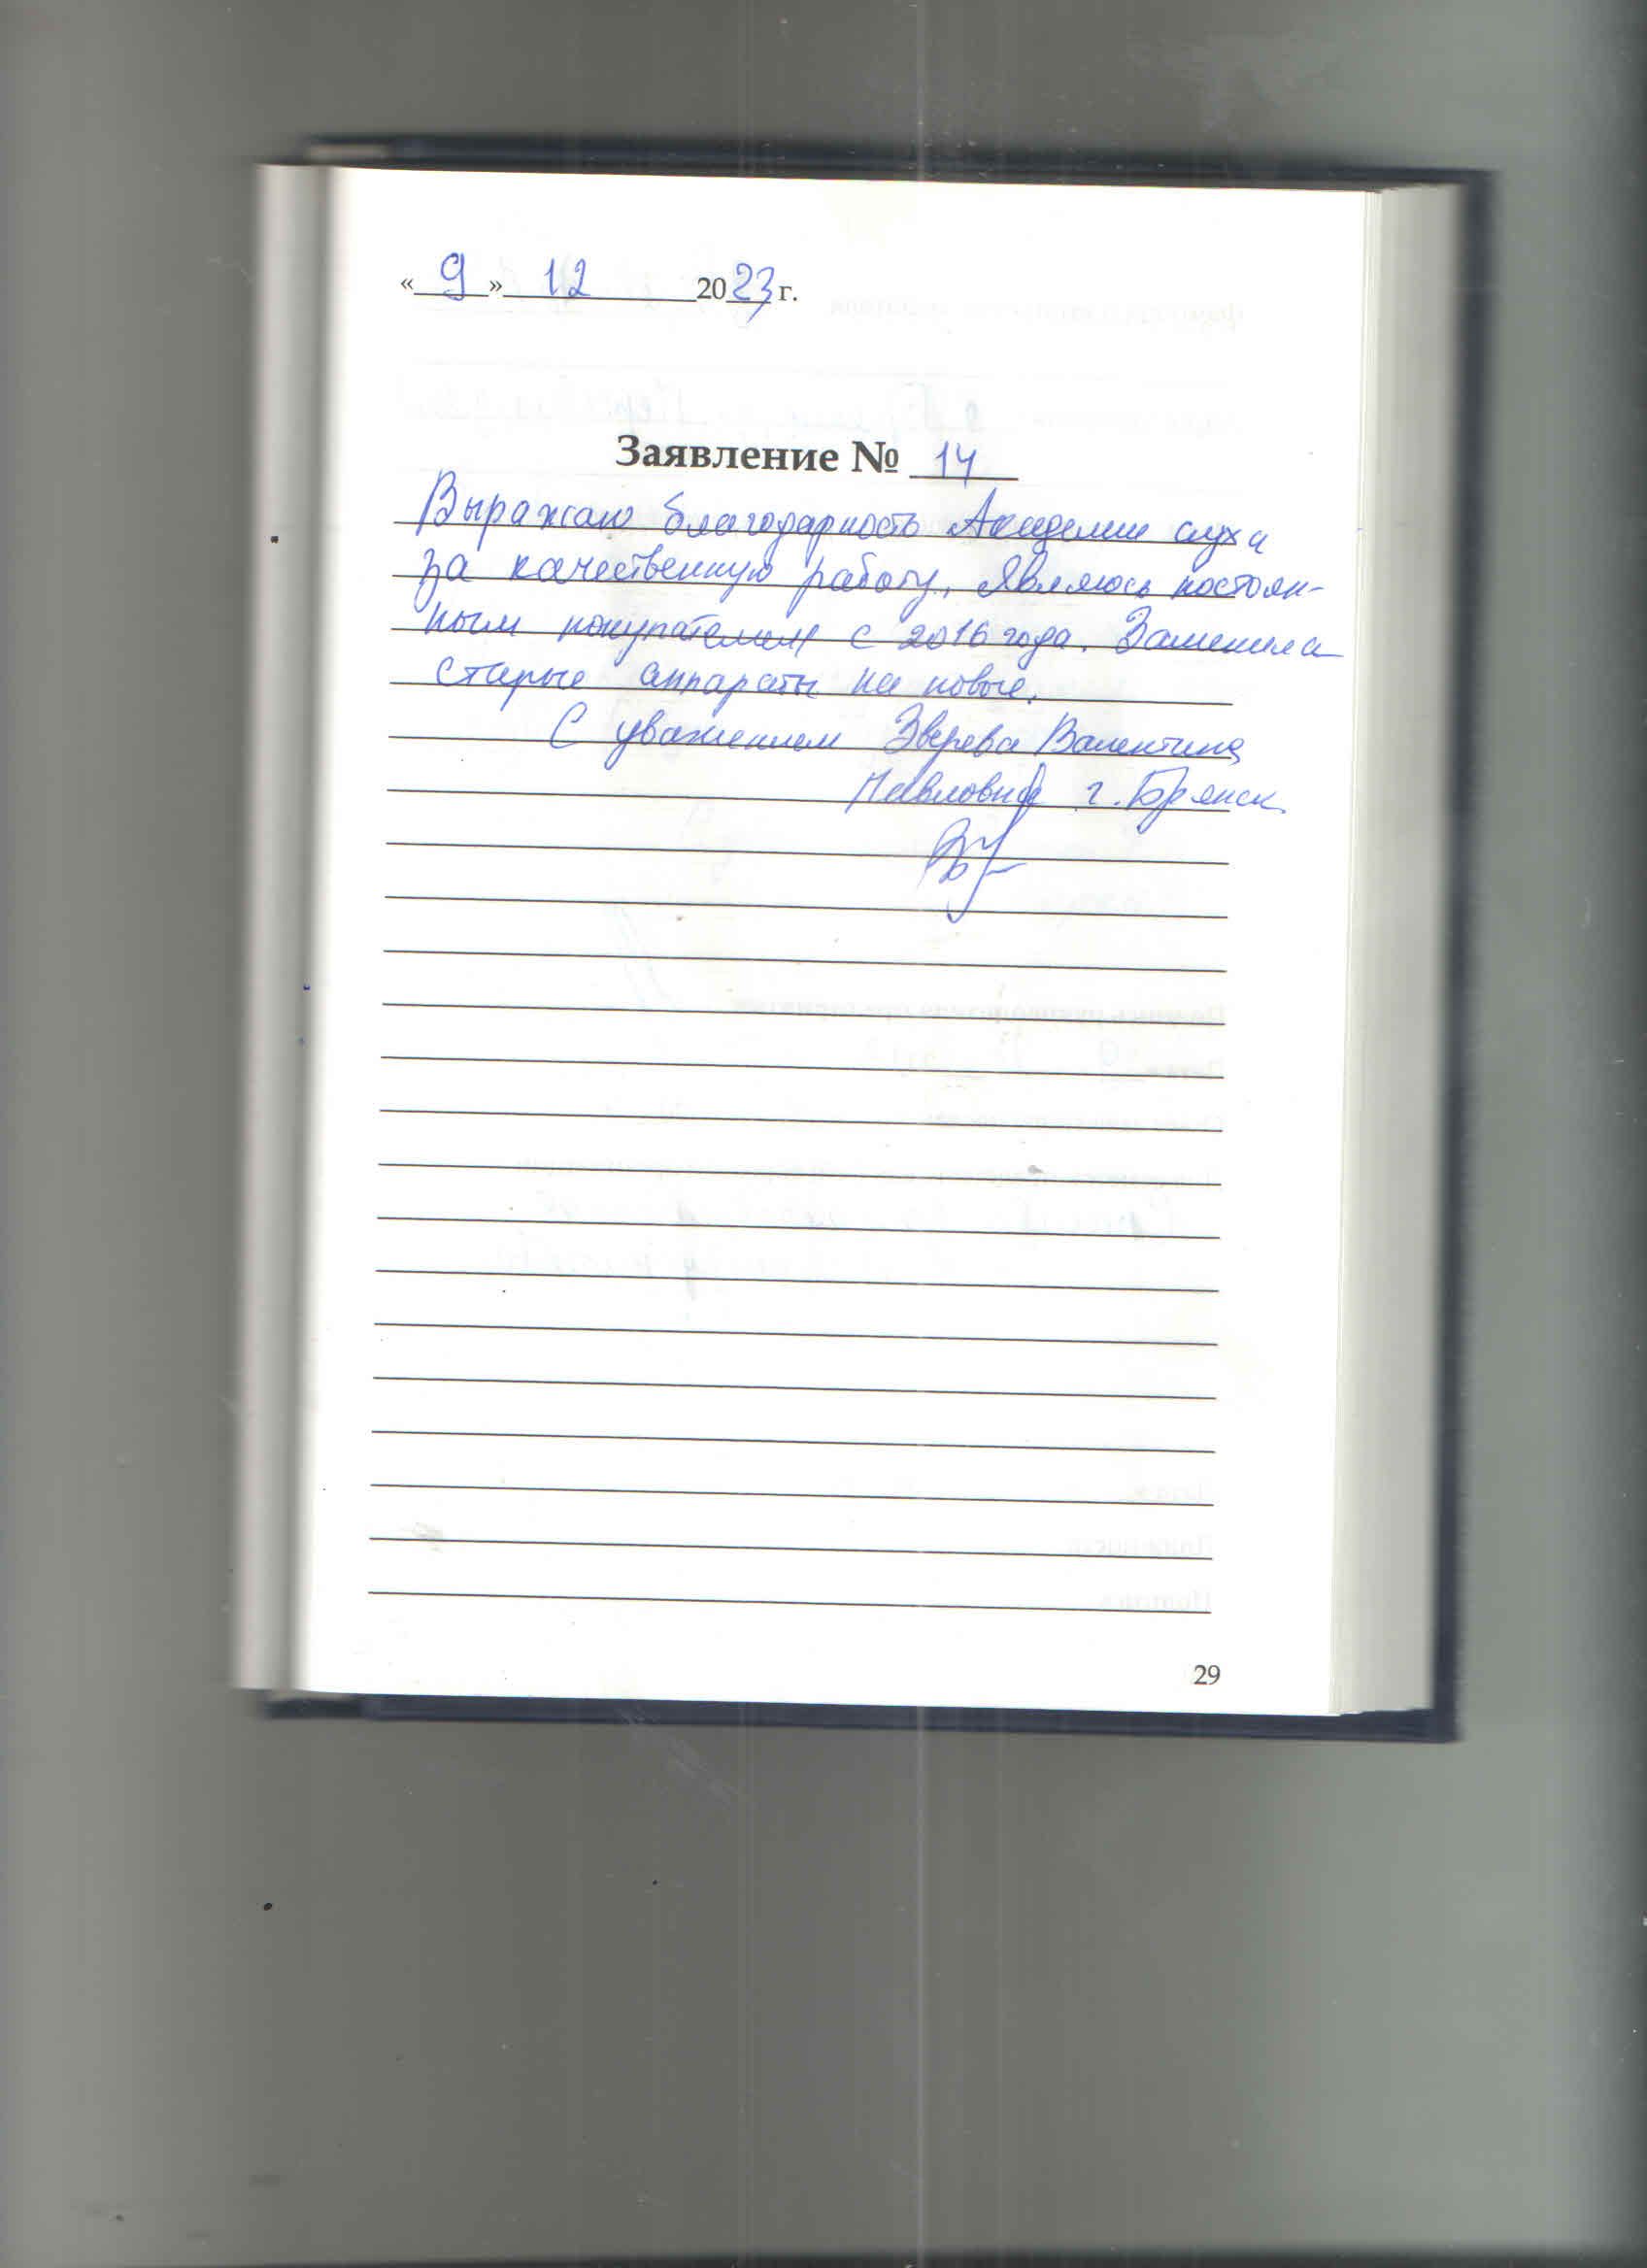 « 9 » 12 2023 г.
Заявление № 14
Выражаю благодарность Академии слуха
за качественную работу. Являюсь постоян-
ным покупателем с 2016 года. Заменила
старые аппараты на новые.
С уважением Зверева Валентина
Павловна г. Брянск.
29